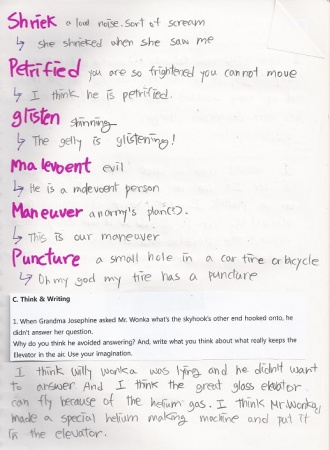 Shriek a loud noise. sort of scream
↳ she shrieked when she saw me
Petrified you are so frightened you cannot move
↳ I think he is petrified.
glisten shinning
↳ The gelly is glistening!
malevoent evil
↳ He is a malevoent person
Maneuver an army's plan(?).
↳ This is our maneuver
Puncture a small hole in a car tire or bicycle
↳ Oh my god my tire has a puncture
C. Think & Writing
1. When Grandma Josephine asked Mr. Wonka what's the skyhook's other end hooked onto, he
didn't answer her question.
Why do you think he avoided answering? And, write what you think about what really keeps the
Elevator in the air. Use your imagination.
I think willy wonka was lying and he didn't want
to answer And I think the great glass elevator
can fly because of the helium gas. I think Mr Wonka
made a special helium making machine and put it
in the elevator.